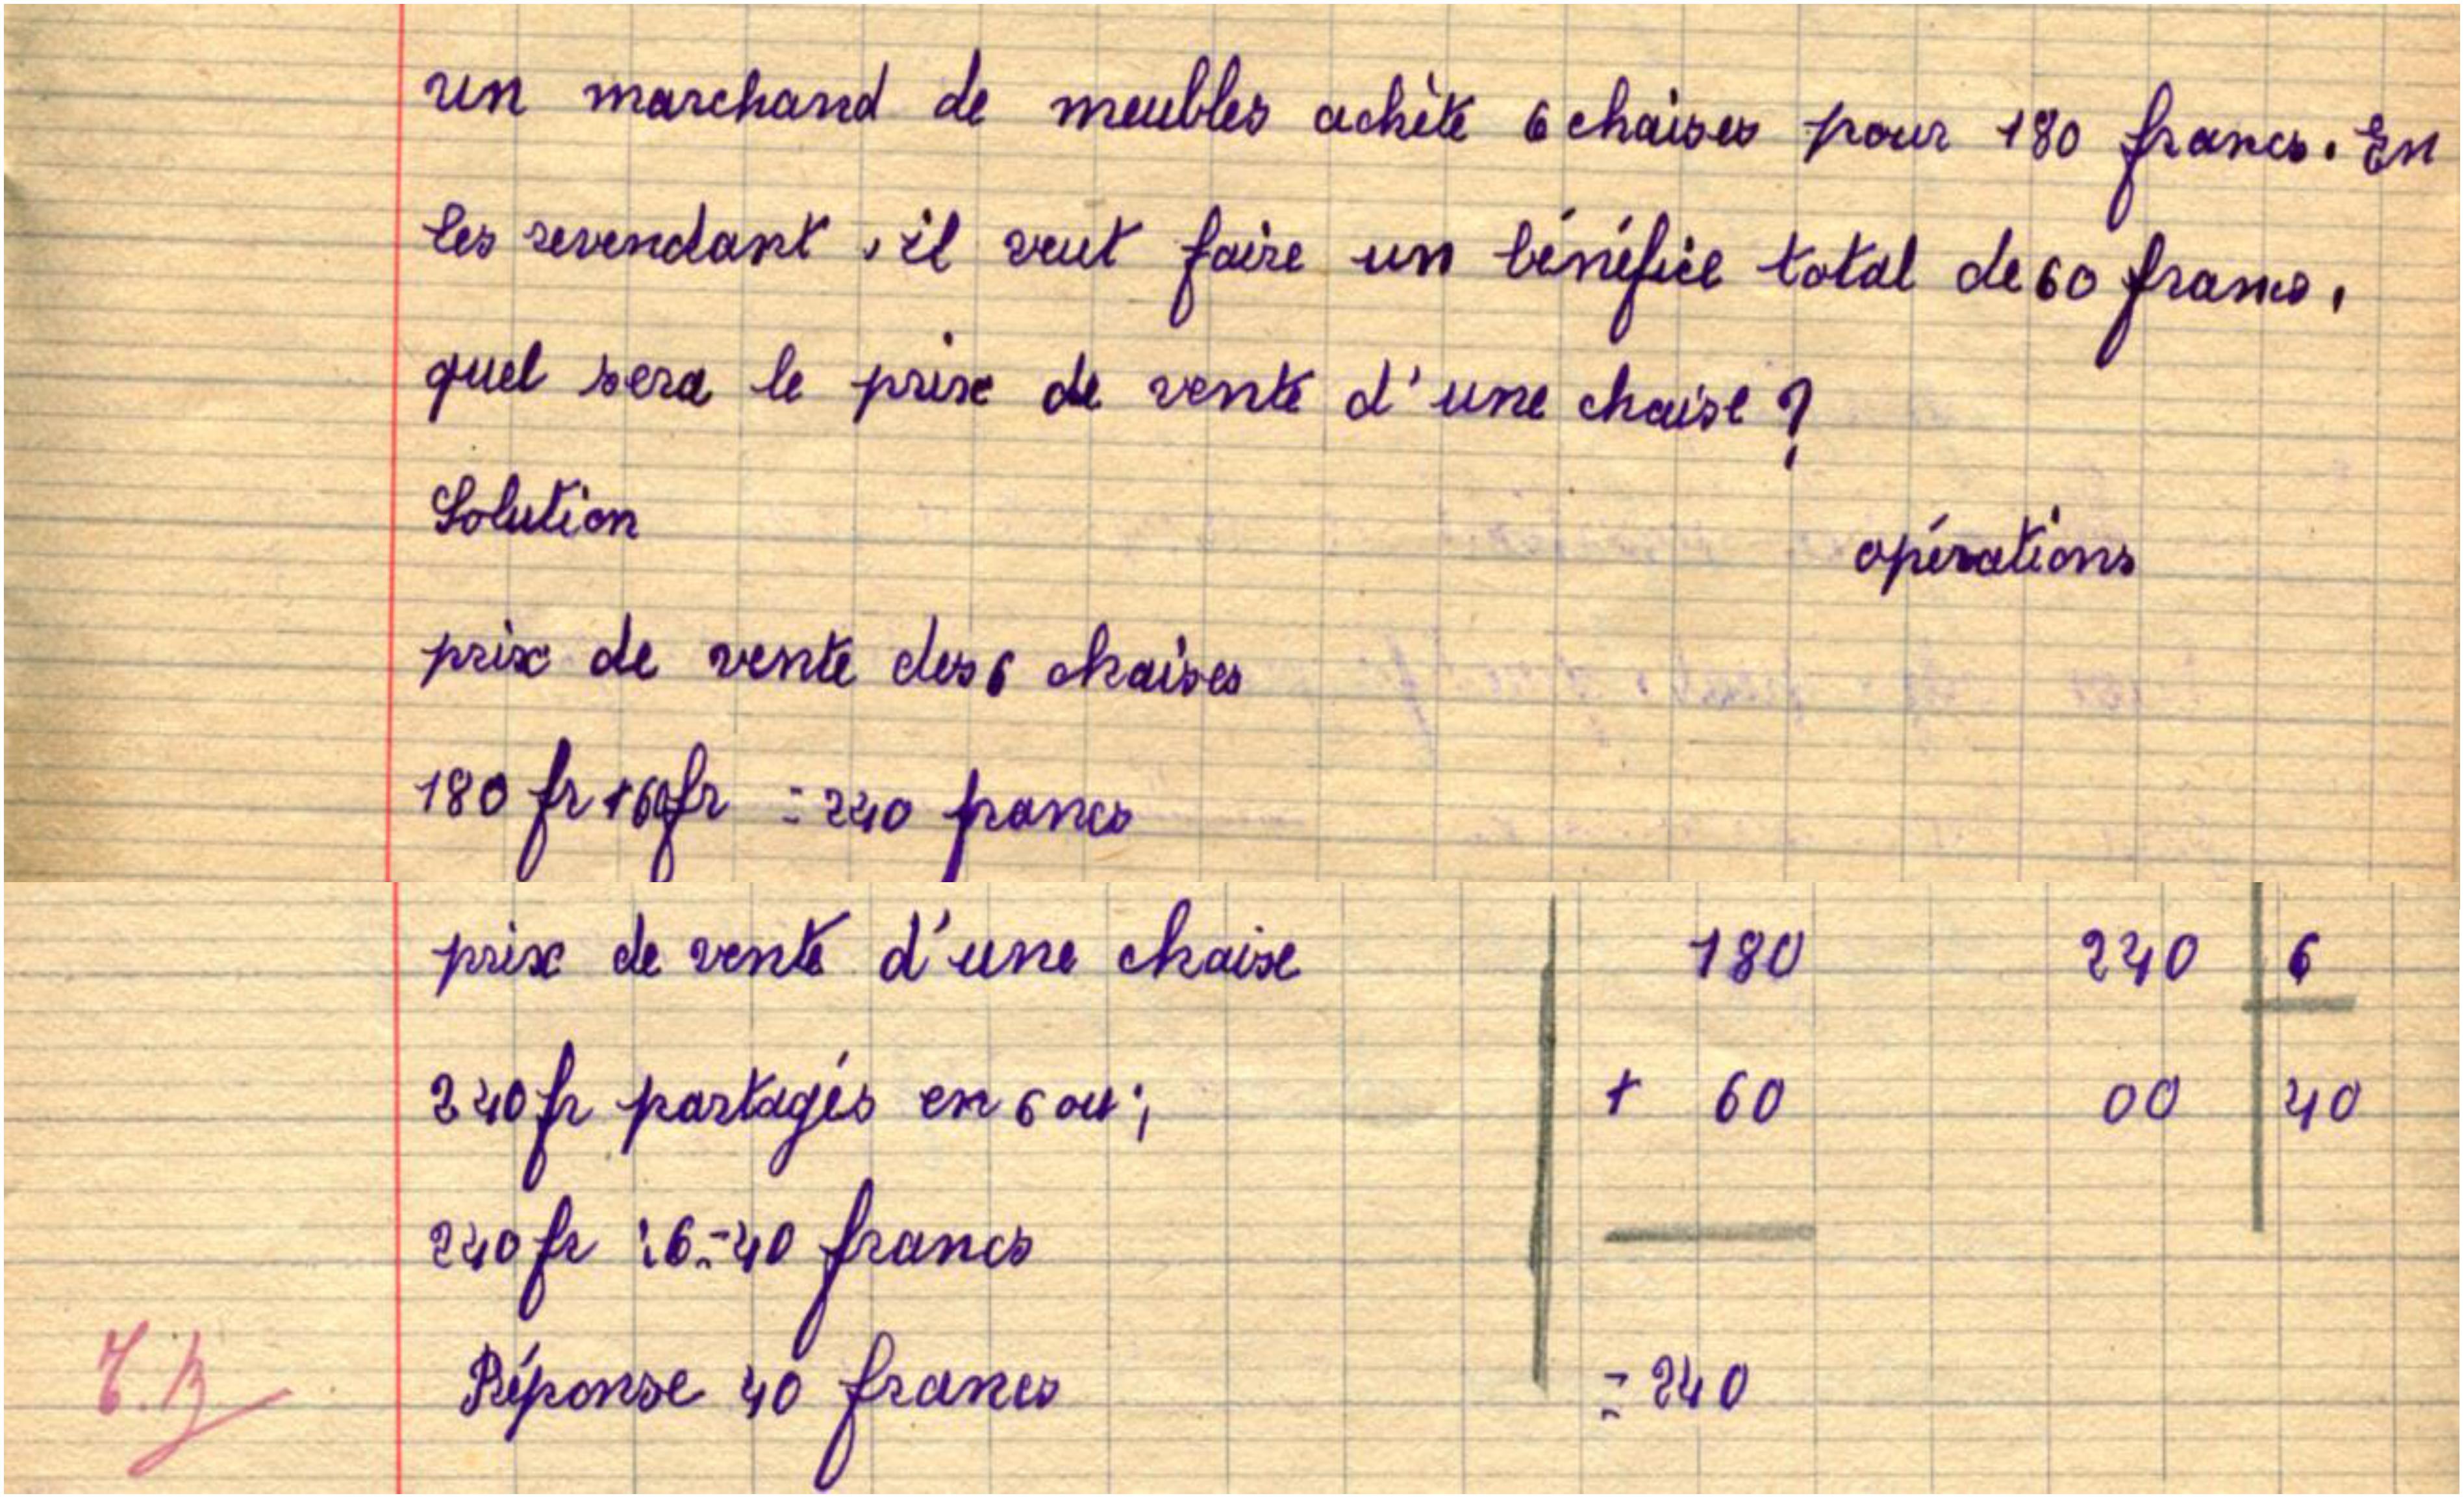 un marchand de meubles achète 6 chaises pour 180 francs. En
les revendant, il veut faire un bénéfice total de 60 francs.
quel sera le prix de vente d'une chaise ?
Solution
opérations
prix de vente des 6 chaises
180 fr + 60 fr = 240 francs
prix de vente d'une chaise
240 fr partagés en 6 ou ;
240 fr : 6 = 40 francs
Réponse 40 francs
180
+ 60
= 240
240 6
00 40
T.B